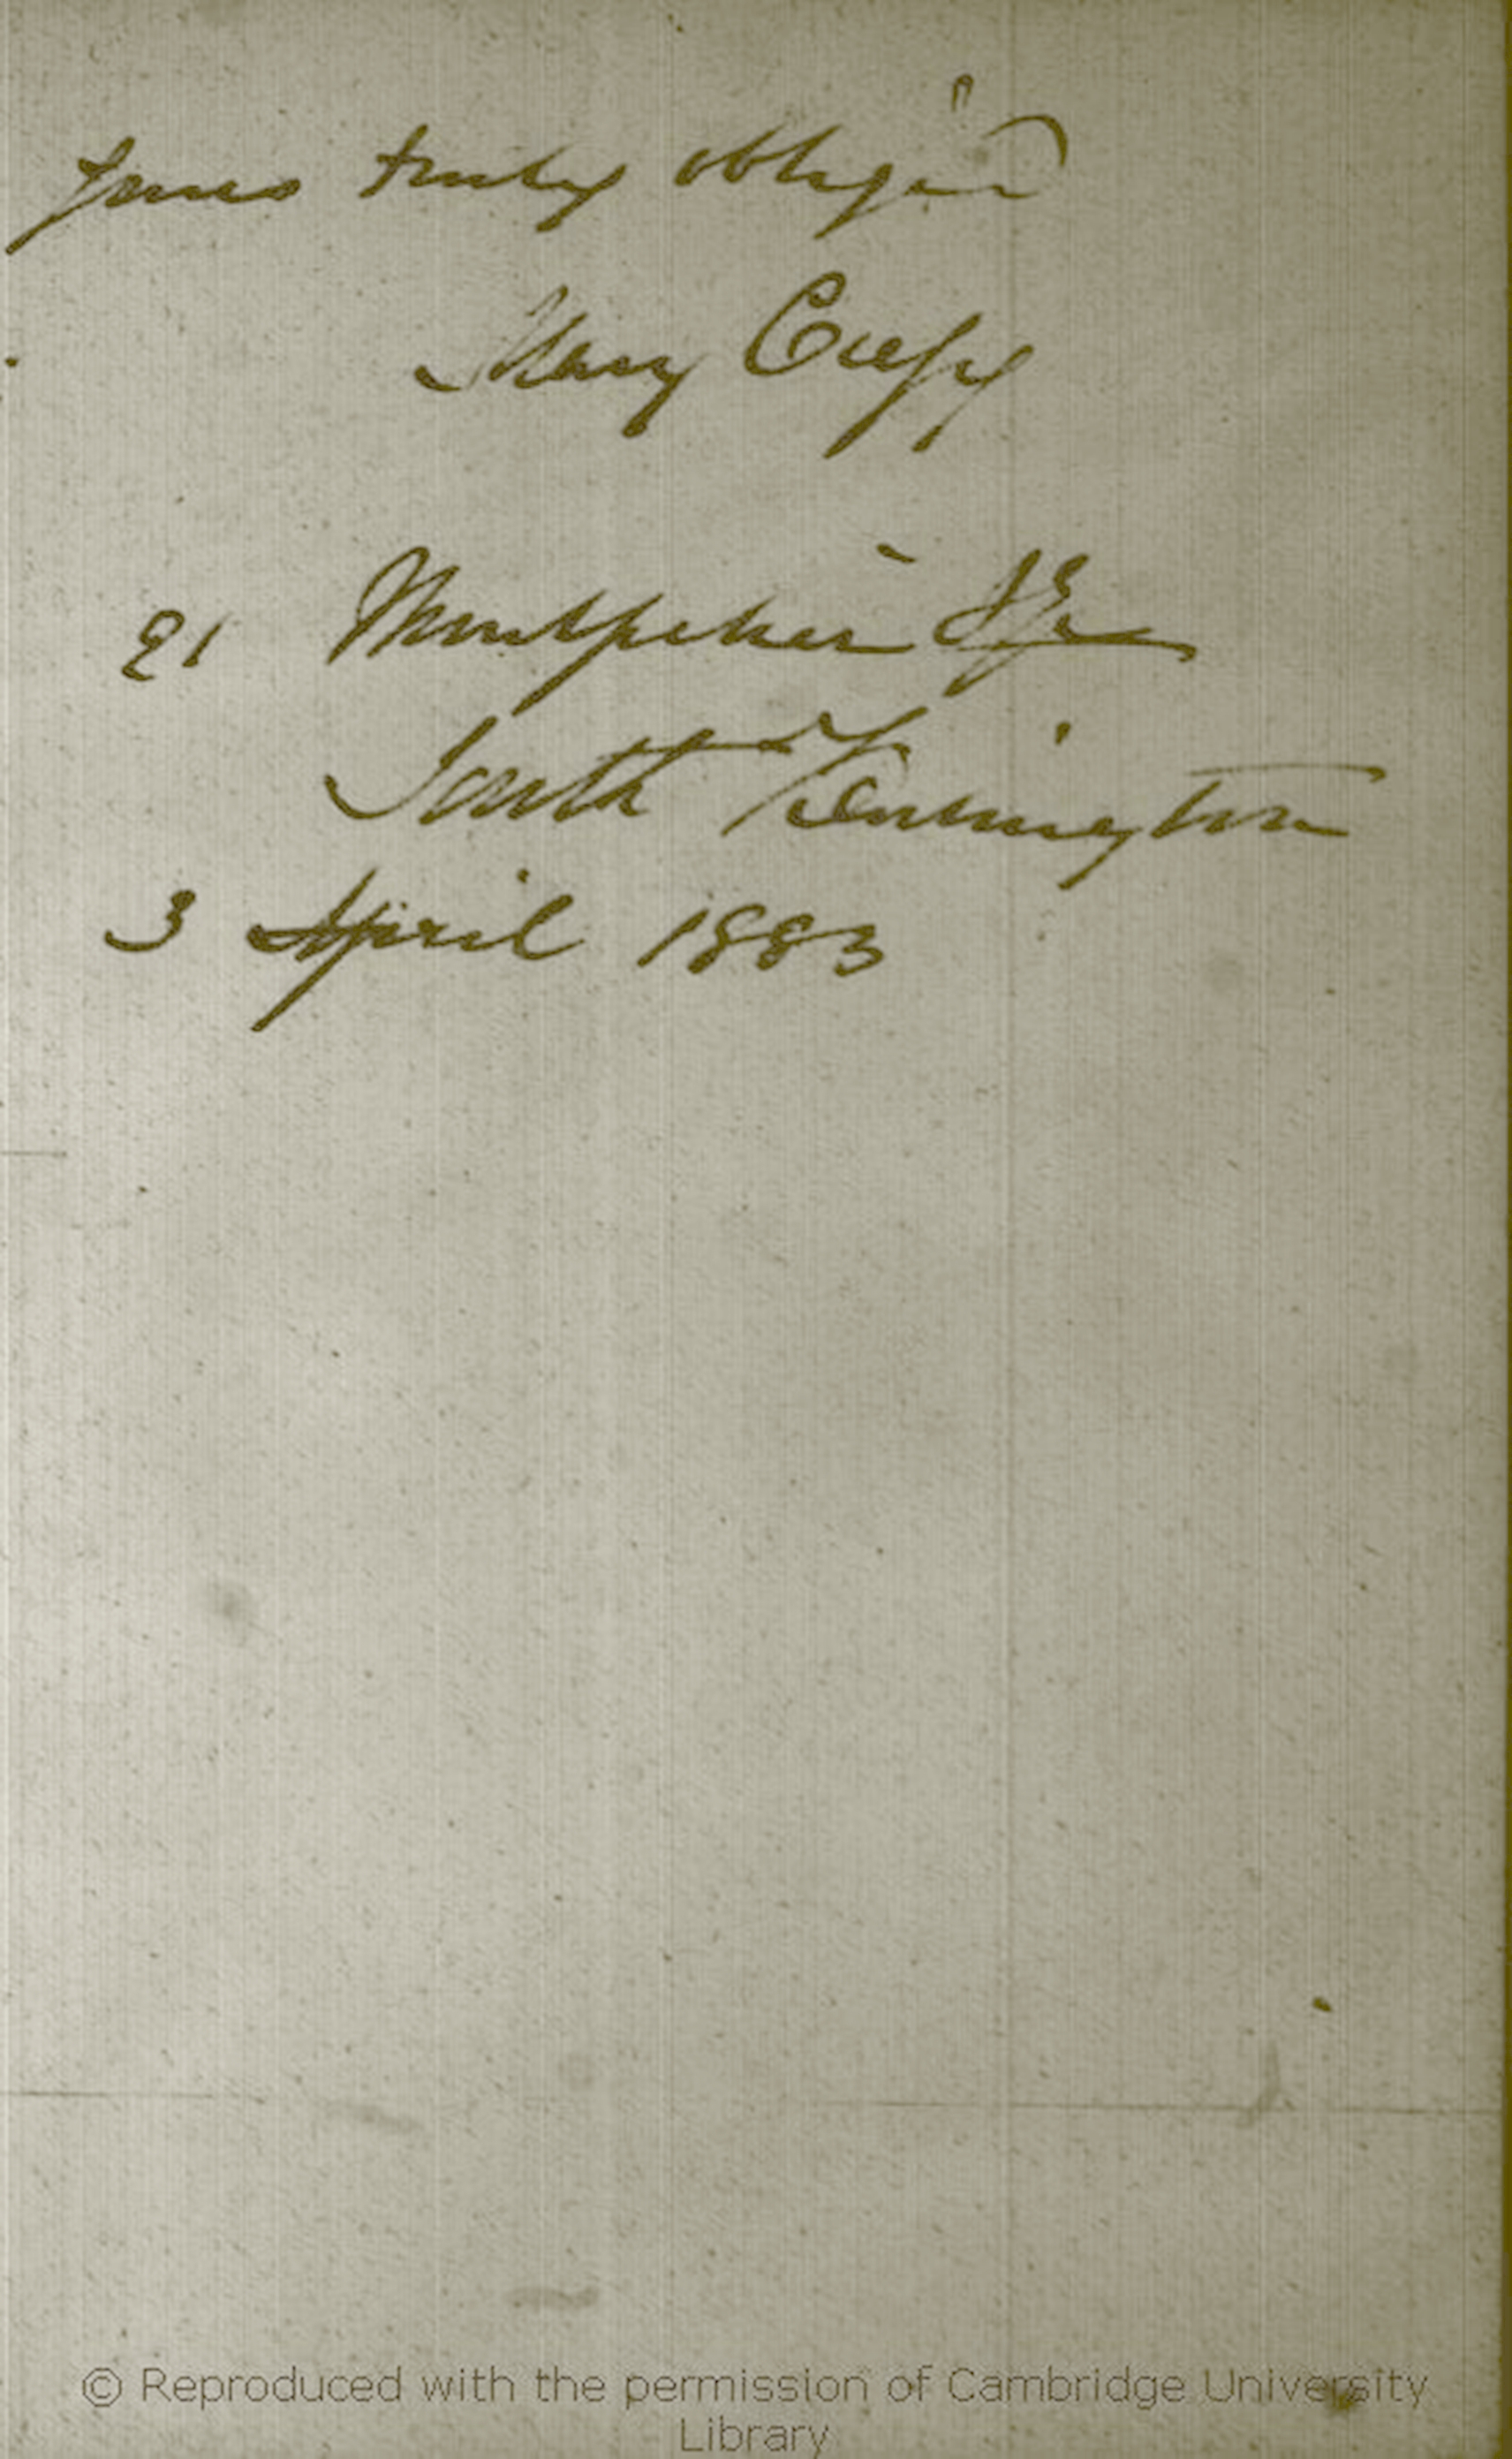 Yours truly obliged
Mary Creasy
21 Montpelier Sqre
South Kensington
3 April 1883
© Reproduced with the permission of Cambridge University
Library